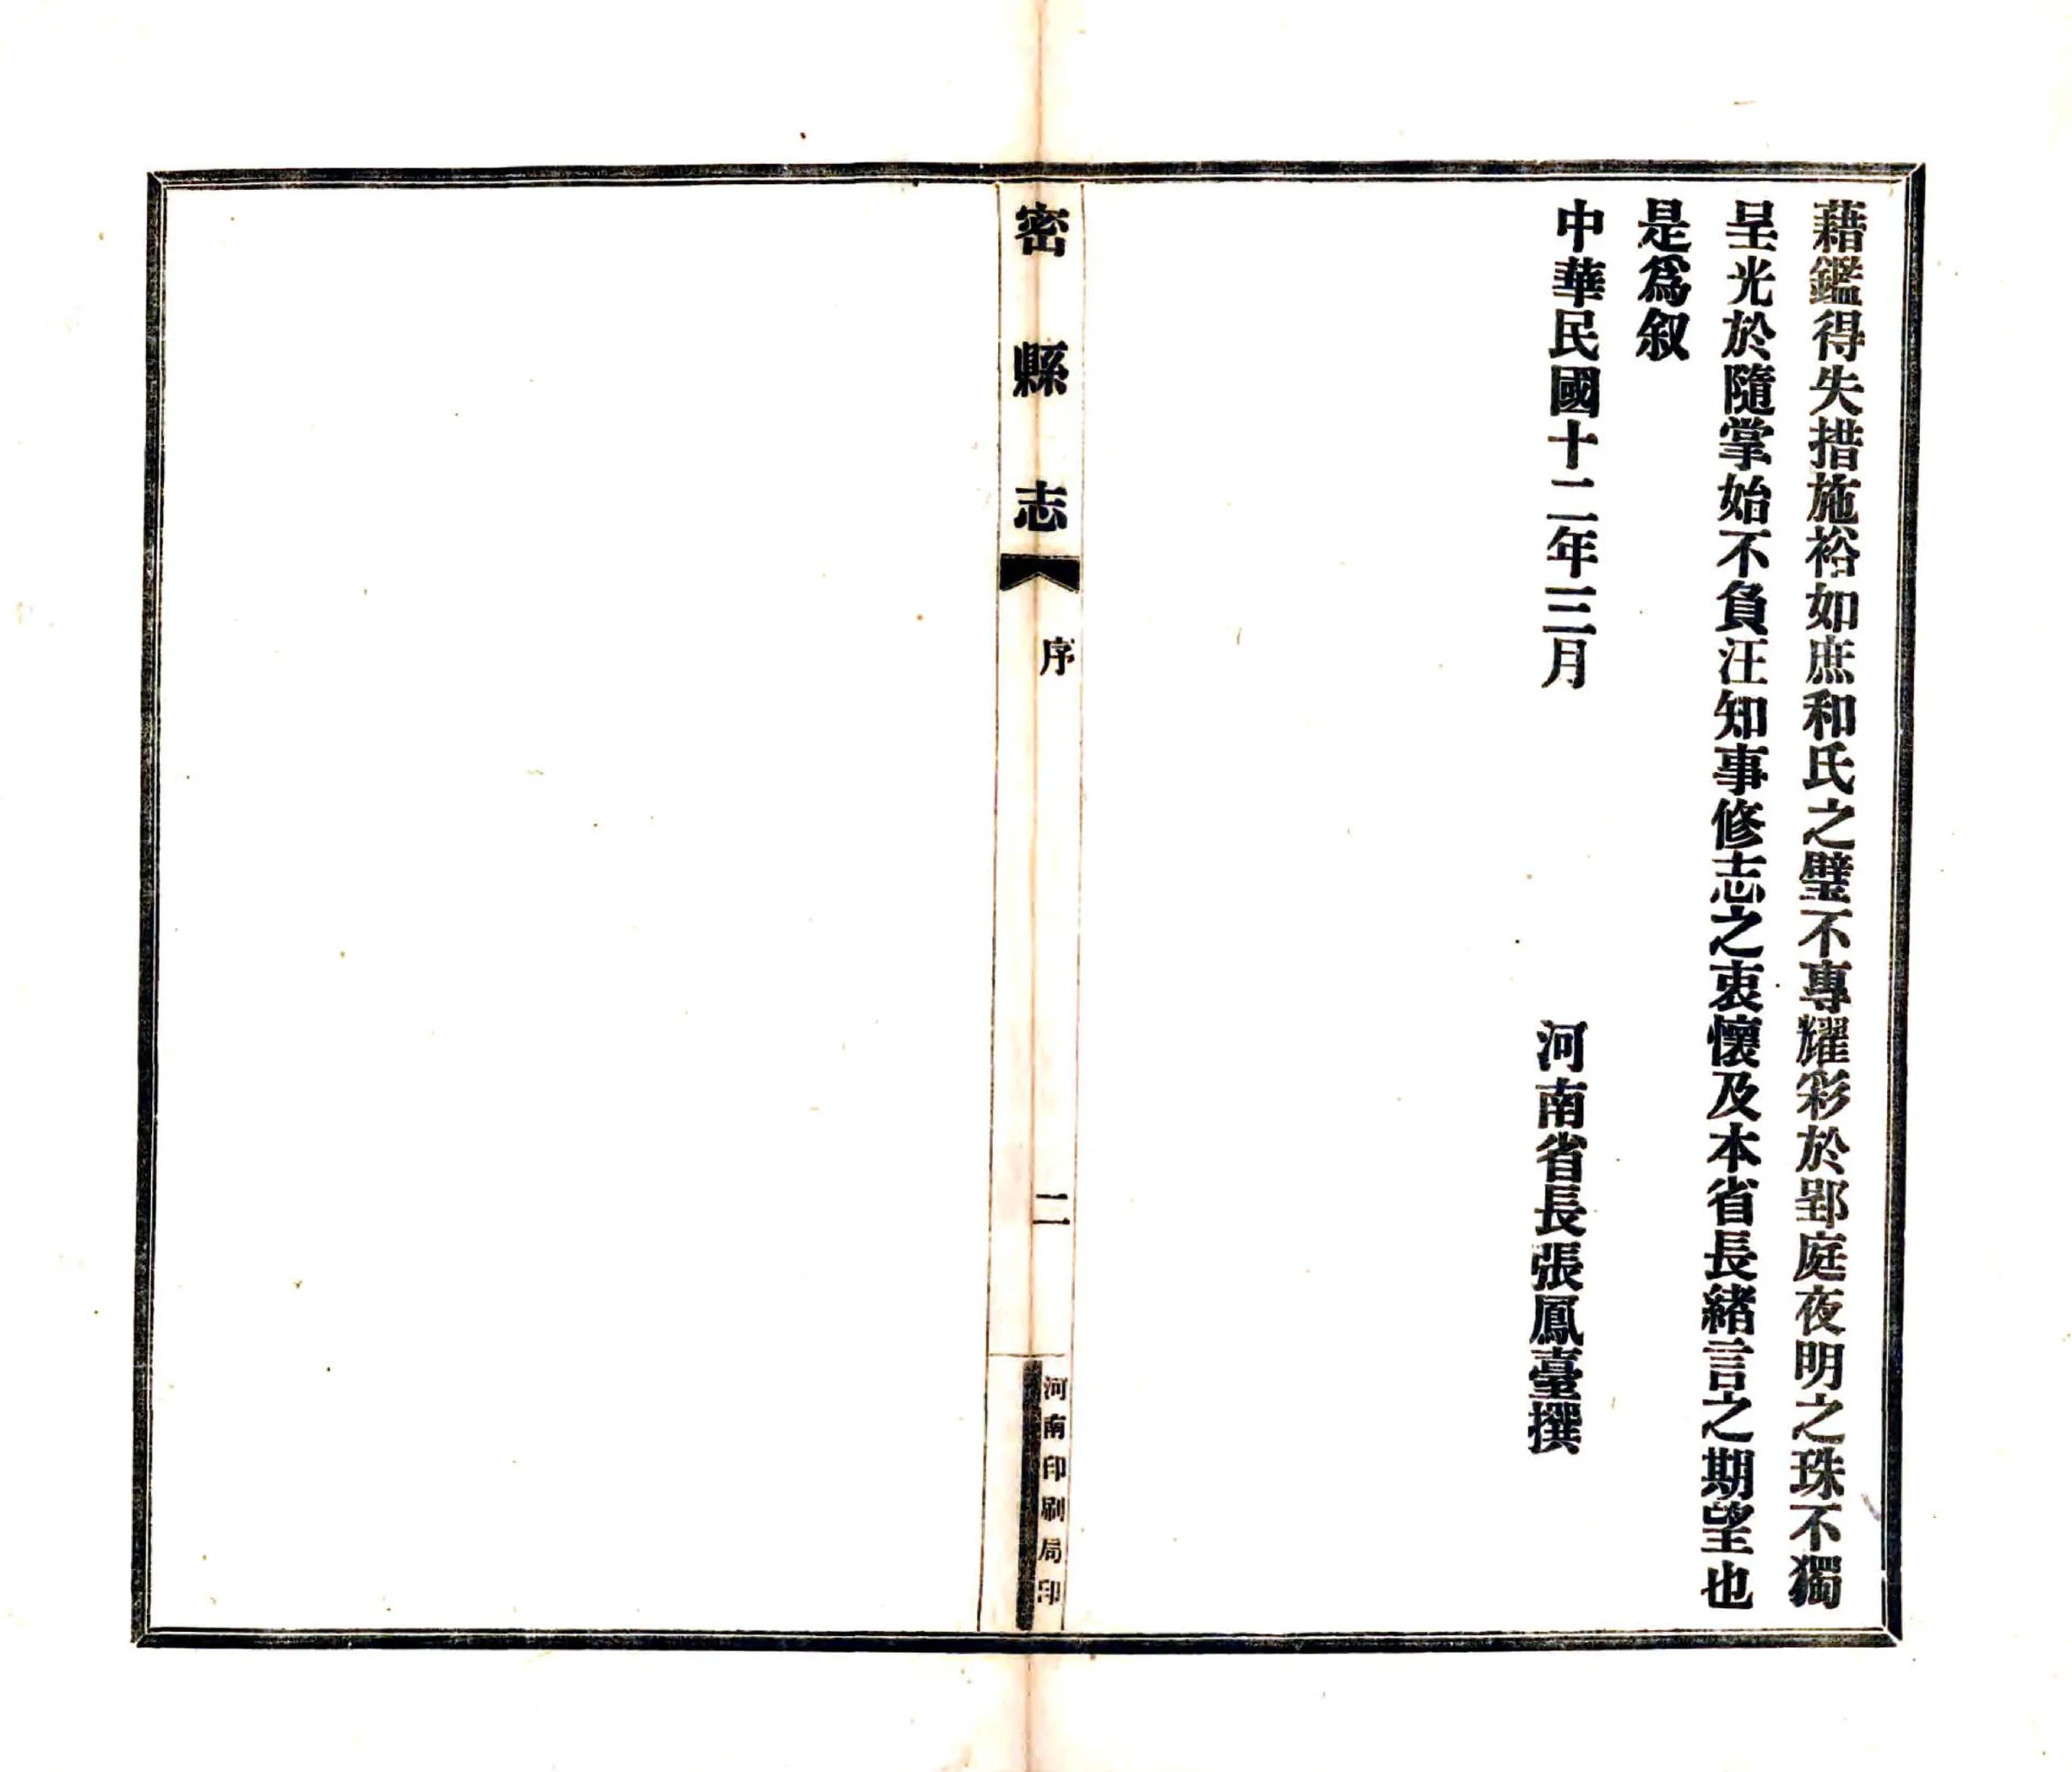 藉鑑得失措施裕如庶和氏之璧不專耀彩於郢庭夜明之珠不獨
呈光於隨掌始不負汪知事修志之衷懷及本省長緒言之期望也
是爲叙
中華民國十二年三月 河南省長張鳳臺撰
密縣志 序 二 河南印刷局印